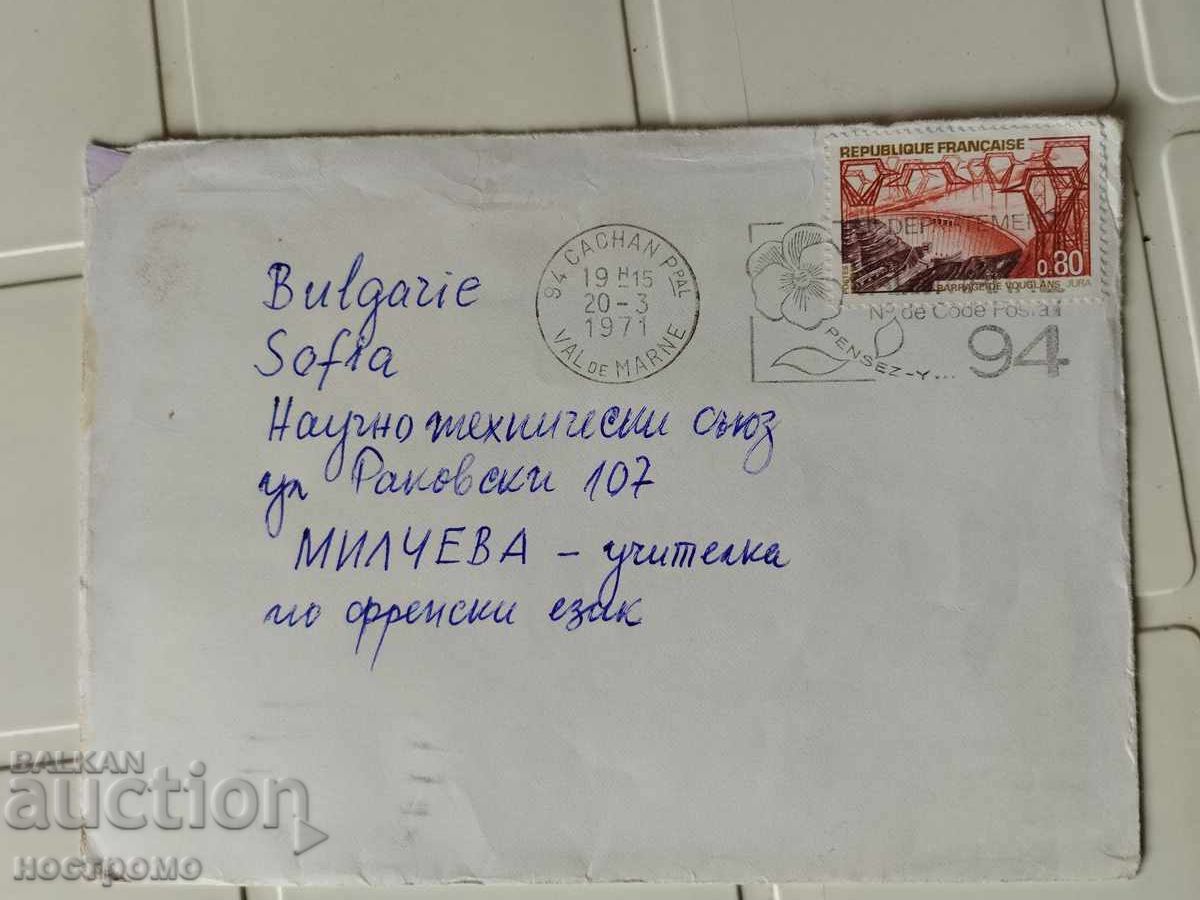 REPUBLIQUE FRANÇAISE
0.80
BARRAGE DE VOUGLANS JURA
94 CACHAN PPAL
19 H 15
20-3
1971
VAL DE MARNE
DEPARTEMENT
No de Code Postal
94
PENSEZ-Y...
Bulgarie
Sofia
Научно технически съюз
ул Раковски 107
МИЛЧЕВА - учителка
по френски език
BALKAN
auction
НОСТРОМО